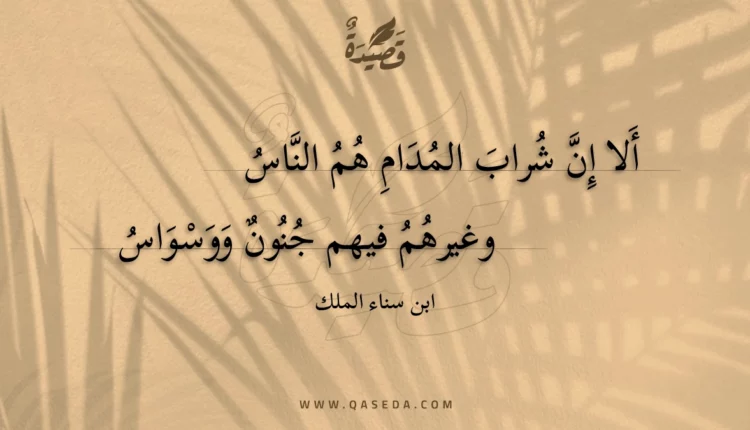 قَصِيْدَةٌ
أَلا إِنَّ شُرابَ المُدَامِ هُمُ النَّاسُ
وغيرهُمُ فيهم جُنُونٌ وَوَسْوَاسُ
ابن سناء الملك
WWW.QASEDA.COM